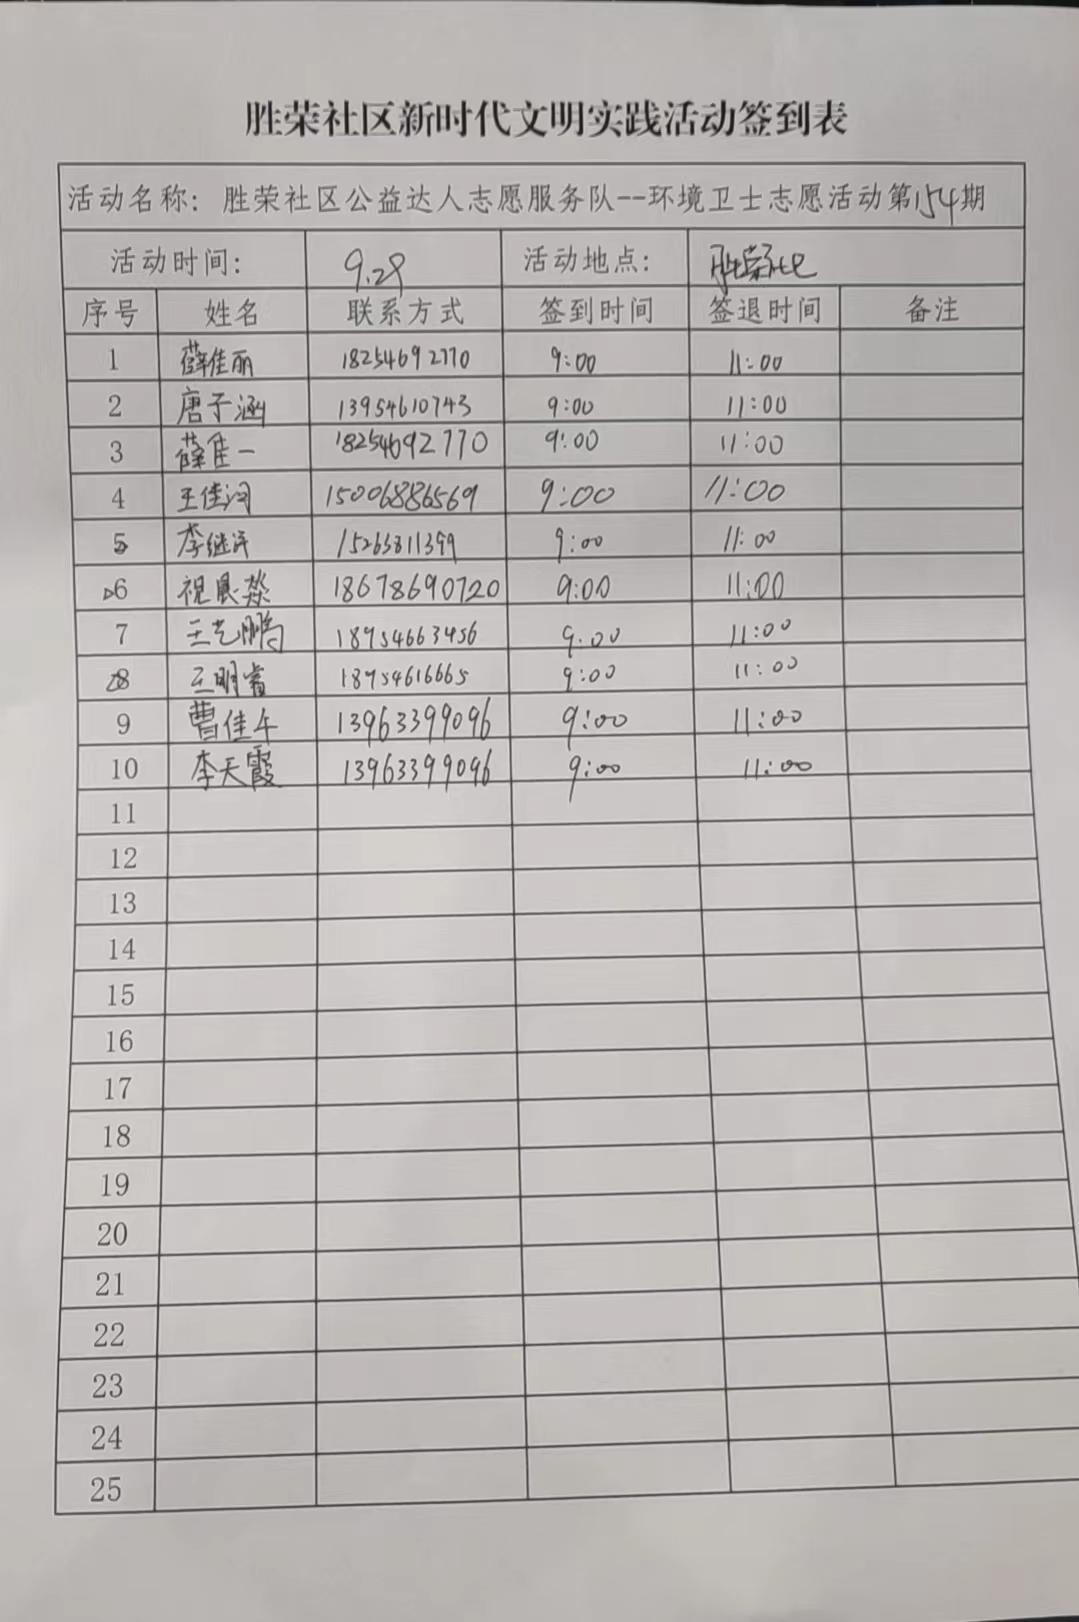 胜荣社区新时代文明实践活动签到表
活动名称：胜荣社区公益达人志愿服务队--环境卫士志愿活动第154期
活动时间： 9.28 活动地点： 胜荣社区
序号 姓名 联系方式 签到时间 签退时间 备注
1 薛佳丽 18254692770 9:00 11:00
2 唐子涵 13954610743 9:00 11:00
3 薛佳一 18254692770 9:00 11:00
4 王佳 15006886569 9:00 11:00
5 李继 15263811399 9:00 11:00
6 祝晨燚 18678690720 9:00 11:00
7 王艺鹏 18954663456 9:00 11:00
8 王明睿 18954616665 9:00 11:00
9 曹佳 13963399096 9:00 11:00
10 李天霞 13963399096 9:00 11:00
11
12
13
14
15
16
17
18
19
20
21
22
23
24
25